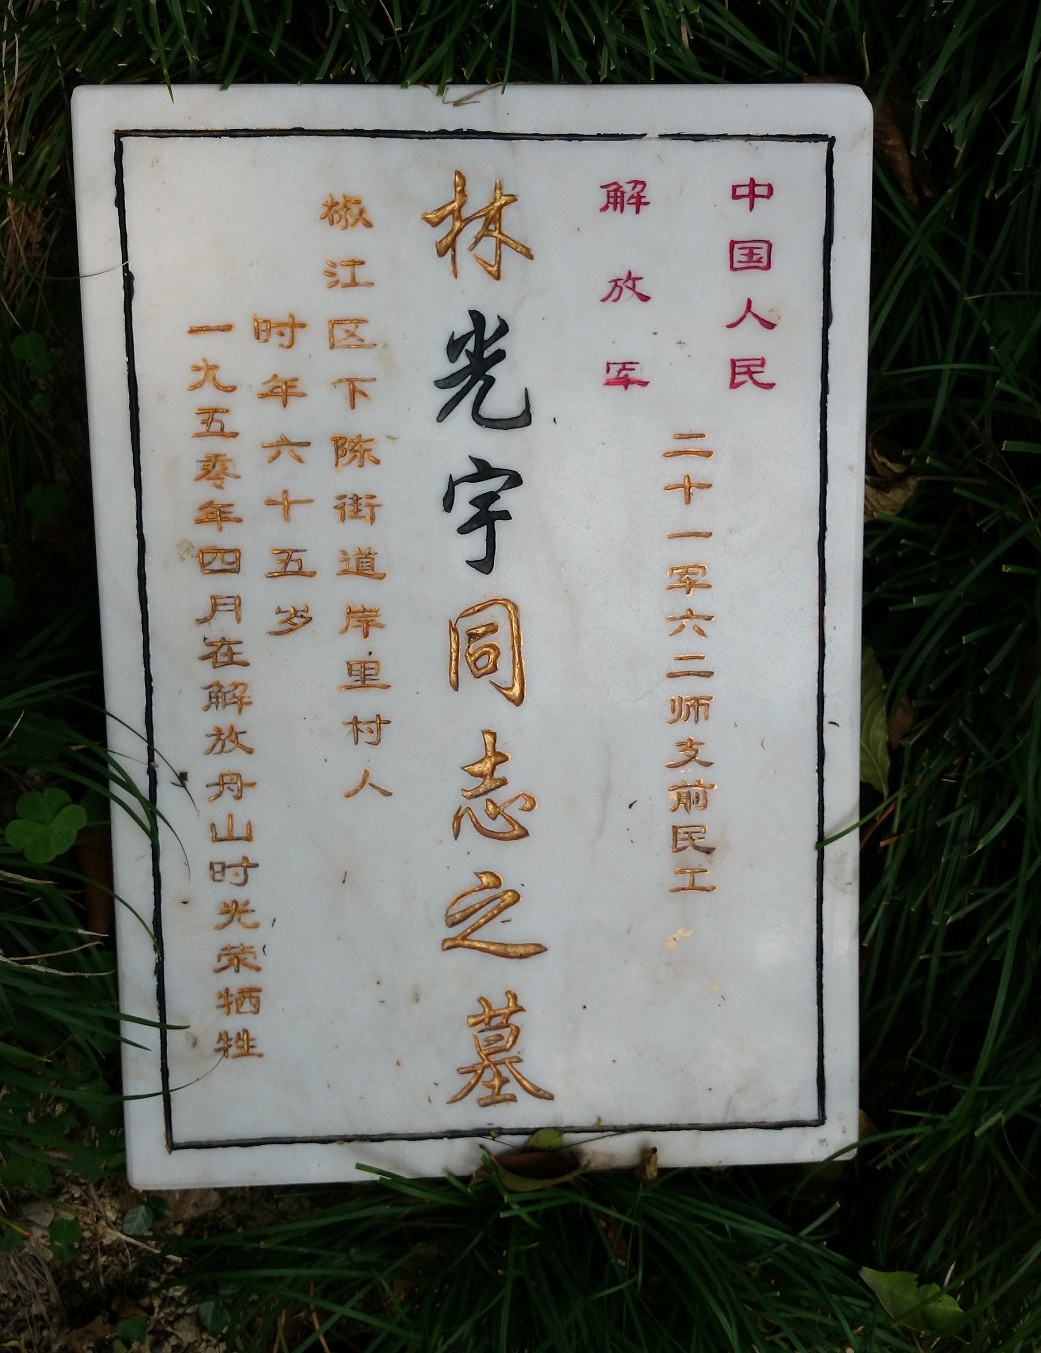 中国人民
解放军
二十一军六二师支前民工
林光宇同志之墓
椒江区下陈街道岸里村人
时年六十五岁
一九五零年四月在解放舟山时光荣牺牲